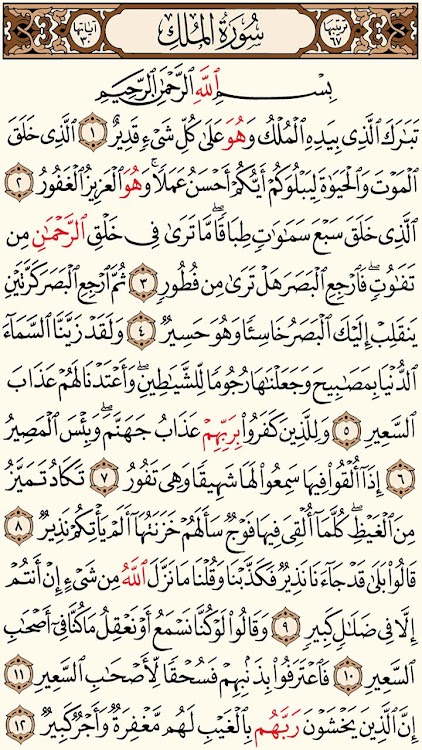 ترتيبها ٦٧ سُورَةُ المُلْكِ آياتها ٣٠
بِسْمِ اللَّهِ الرَّحْمَٰنِ الرَّحِيمِ
تَبَارَكَ الَّذِي بِيَدِهِ الْمُلْكُ وَهُوَ عَلَىٰ كُلِّ شَيْءٍ قَدِيرٌ ١ الَّذِي خَلَقَ
الْمَوْتَ وَالْحَيَوٰةَ لِيَبْلُوَكُمْ أَيُّكُمْ أَحْسَنُ عَمَلًا ۚ وَهُوَ الْعَزِيزُ الْغَفُورُ ٢
الَّذِي خَلَقَ سَبْعَ سَمَٰوَٰتٍ طِبَاقًا ۖ مَّا تَرَىٰ فِي خَلْقِ الرَّحْمَٰنِ مِن
تَفَٰوُتٍ ۖ فَارْجِعِ الْبَصَرَ هَلْ تَرَىٰ مِن فُطُورٍ ٣ ثُمَّ ارْجِعِ الْبَصَرَ كَرَّتَيْنِ
يَنقَلِبْ إِلَيْكَ الْبَصَرُ خَاسِئًا وَهُوَ حَسِيرٌ ٤ وَلَقَدْ زَيَّنَّا السَّمَآءَ
الدُّنْيَا بِمَصَٰبِيحَ وَجَعَلْنَٰهَا رُجُومًا لِّلشَّيَٰطِينِ ۖ وَأَعْتَدْنَا لَهُمْ عَذَابَ
السَّعِيرِ ٥ وَلِلَّذِينَ كَفَرُوا بِرَبِّهِمْ عَذَابُ جَهَنَّمَ ۖ وَبِئْسَ الْمَصِيرُ
٦ إِذَآ أُلْقُوا فِيهَا سَمِعُوا لَهَا شَهِيقًا وَهِيَ تَفُورُ ٧ تَكَادُ تَمَيَّزُ
مِنَ الْغَيْظِ ۖ كُلَّمَآ أُلْقِيَ فِيهَا فَوْجٌ سَأَلَهُمْ خَزَنَتُهَآ أَلَمْ يَأْتِكُمْ نَذِيرٌ ٨
قَالُوا بَلَىٰ قَدْ جَآءَنَا نَذِيرٌ فَكَذَّبْنَا وَقُلْنَا مَا نَزَّلَ اللَّهُ مِن شَيْءٍ إِنْ أَنتُمْ
إِلَّا فِي ضَلَٰلٍ كَبِيرٍ ٩ وَقَالُوا لَوْ كُنَّا نَسْمَعُ أَوْ نَعْقِلُ مَا كُنَّا فِيٓ أَصْحَٰبِ
السَّعِيرِ ١٠ فَاعْتَرَفُوا بِذَنۢبِهِمْ فَسُحْقًا لِّأَصْحَٰبِ السَّعِيرِ ١١
إِنَّ الَّذِينَ يَخْشَوْنَ رَبَّهُم بِالْغَيْبِ لَهُم مَّغْفِرَةٌ وَأَجْرٌ كَبِيرٌ ١٢